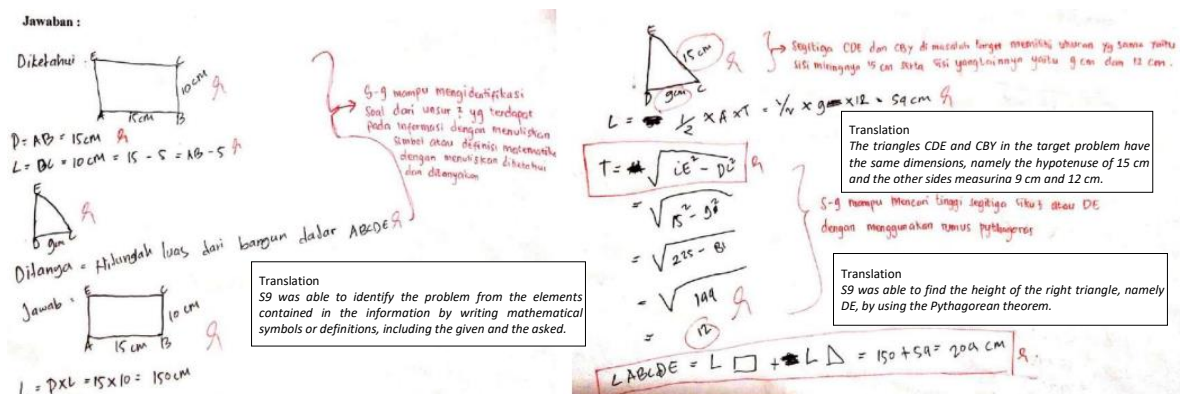 Jawaban :
Diketahui :
E
C
10 cm
A
15cm
B
P = AB = 15cm
L = BC = 10 cm = 15 - 5 = AB - 5
E
D
9cm
C
Ditanya = Hitunglah luas dari bangun datar ABCDE
Jawab :
E
C
10 cm
A
15 cm
B
L = P×L = 15×10 = 150cm
S-9 mampu mengidentifikasi
Soal dari unsur² yg terdapat
pada informasi dengan menuliskan
Simbol atau definisi matematika
dengan menuliskan diketahui
dan ditanyakan
Translation
S9 was able to identify the problem from the elements
contained in the information by writing mathematical
symbols or definitions, including the given and the asked.
E
15 cm
D
9cm
C
Segitiga CDE dan CBY di masalah target memiliki ukuran yg sama yaitu
sisi miringnya 15 cm serta sisi yang lainnya yaitu 9 cm dan 12 cm.
L = 1/2 × A × T = 1/2 × 9 × 12 = 54 cm
Translation
The triangles CDE and CBY in the target problem have
the same dimensions, namely the hypotenuse of 15 cm
and the other sides measuring 9 cm and 12 cm.
T = √CE² - DC²
= √15² - 9²
= √225 - 81
= √144
= 12
S-9 mampu mencari tinggi segitiga siku² atau DE
dengan menggunakan rumus pythagoras
Translation
S9 was able to find the height of the right triangle, namely
DE, by using the Pythagorean theorem.
L ABCDE = L □ + L △ = 150 + 54 = 204 cm